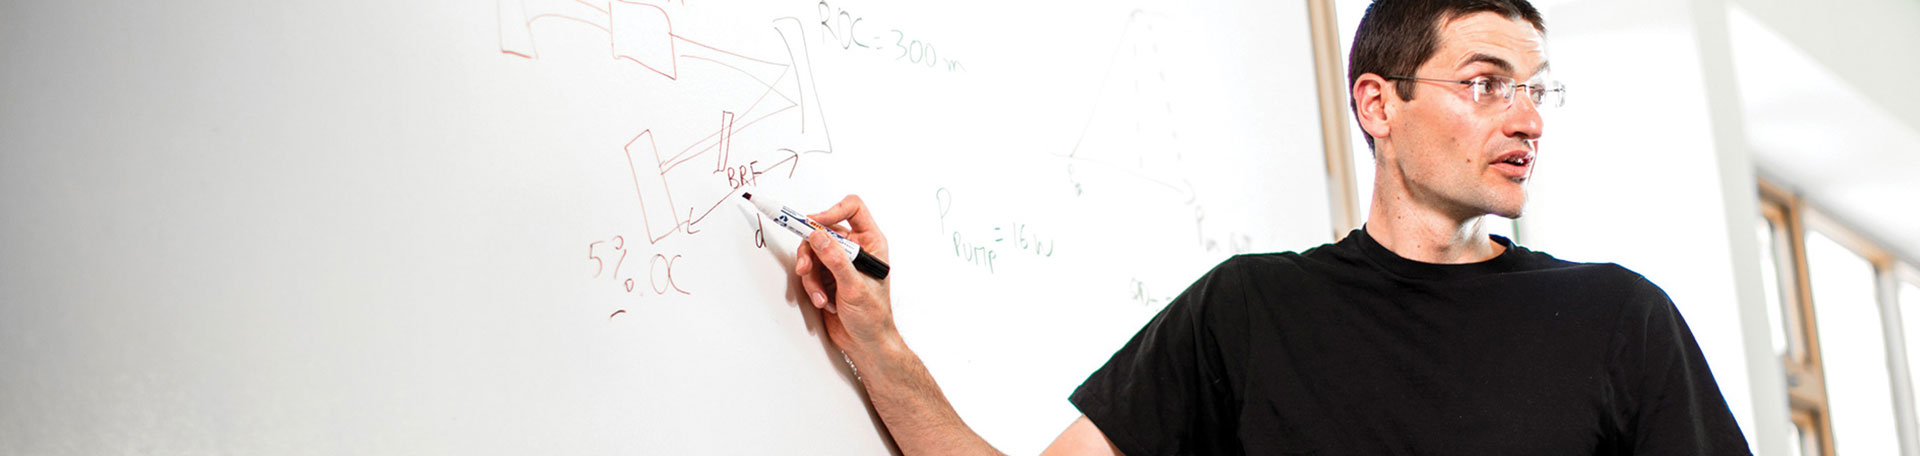 ROC = 300 m
BRF
d
5% OC
P PUMP = 16 W